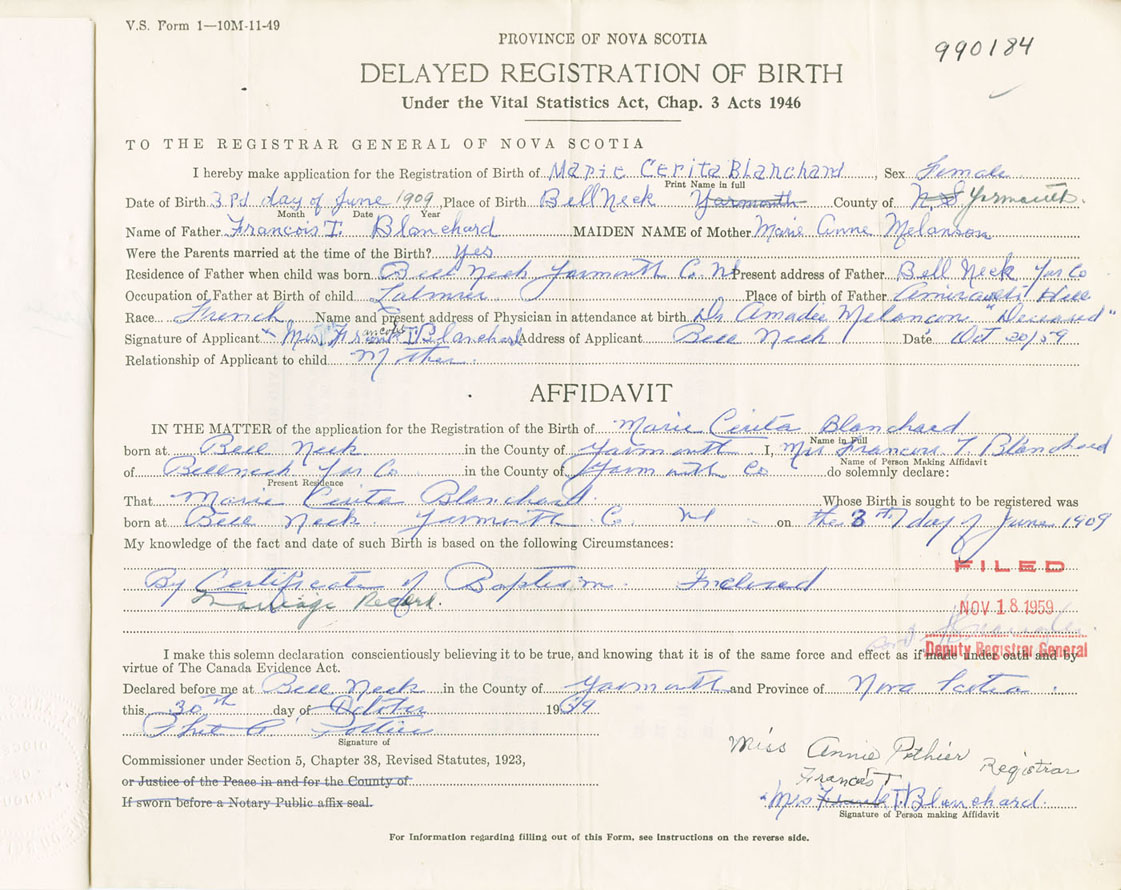 V.S. Form 1—10M-11-49
PROVINCE OF NOVA SCOTIA
990184
DELAYED REGISTRATION OF BIRTH
Under the Vital Statistics Act, Chap. 3 Acts 1946
TO THE REGISTRAR GENERAL OF NOVA SCOTIA
I hereby make application for the Registration of Birth of Marie Cerita Blanchard, Sex Female
Print Name in full
Date of Birth 3rd day of June 1909 Place of Birth Bell Neck Yarmouth County of N.S Yarmouth.
Month Date Year
Name of Father Francois T. Blanchard MAIDEN NAME of Mother Marie Anne Melanson
Were the Parents married at the time of the Birth? Yes
Residence of Father when child was born Bell Neck Yarmouth Co. NS Present address of Father Bell Neck Yar Co
Occupation of Father at Birth of child Place of birth of Father Hill
Race French Name and present address of Physician in attendance at birth Dr Amadie Melancon "Deceased"
Signature of Applicant Mrs Francois T Blanchard Address of Applicant Bell Neck Date Oct 30/59
Relationship of Applicant to child Mother.
AFFIDAVIT
IN THE MATTER of the application for the Registration of the Birth of Marie Cerita Blanchard
Name in Full
born at Bell Neck in the County of Yarmouth. I, Mrs Francois T. Blanchard
Name of Person Making Affidavit
of Bellneck Yar Co in the County of Yarmouth Co do solemnly declare:
Present Residence
That Marie Cerita Blanchard. Whose Birth is sought to be registered was
born at Bell Neck. Yarmouth. Co. NS on the 3th day of June 1909
My knowledge of the fact and date of such Birth is based on the following Circumstances:
By Certificate of Baptism Inclosed
Marriage Record.
FILED
NOV 18 1959
Deputy Registrar General
I make this solemn declaration conscientiously believing it to be true, and knowing that it is of the same force and effect as if made under oath and by
virtue of The Canada Evidence Act.
Declared before me at Bell Neck in the County of Yarmouth and Province of Nova Scotia.
this 30th day of October 1959
Pottier
Signature of
Commissioner under Section 5, Chapter 38, Revised Statutes, 1923,
or Justice of the Peace in and for the County of
If sworn before a Notary Public affix seal.
Miss Annie Pothier Registrar
Francois T
Mrs Frank T. Blanchard.
Signature of Person making Affidavit
For Information regarding filling out of this Form, see Instructions on the reverse side.